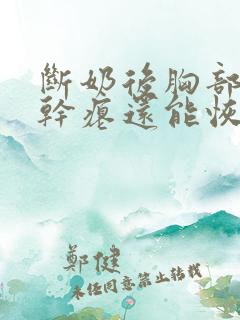 斷奶後胸部
幹癟還能恢
鄭健
未經同意禁止轉載